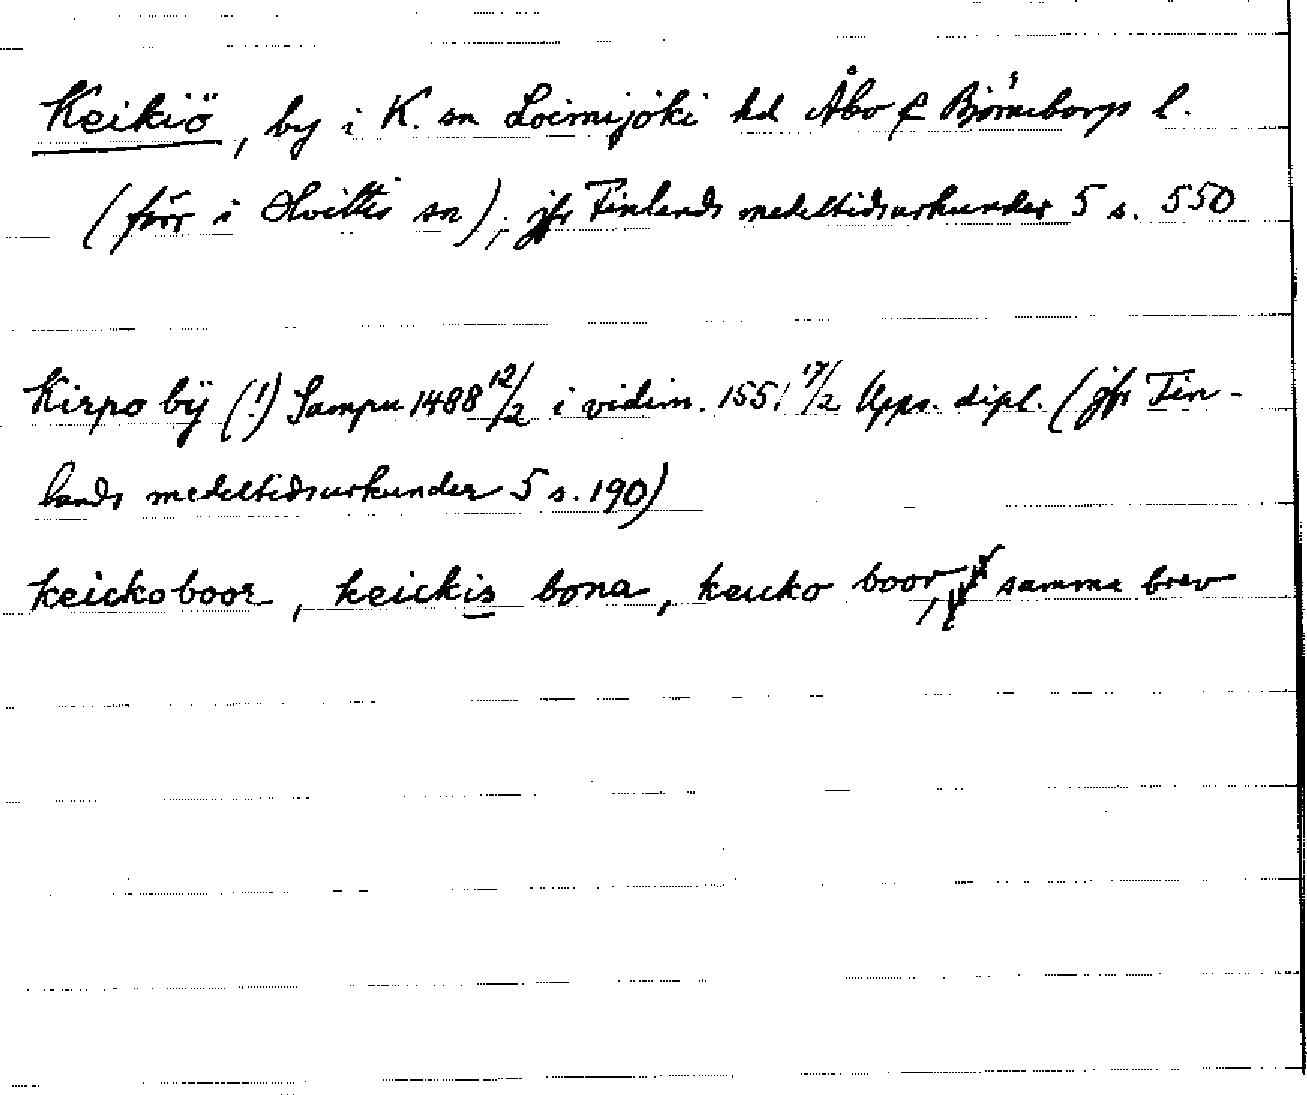 Keikiö, by i K. sn Loimijoki hd Åbo & Björneborgs l.
(förr i Hvittis sn); jfr Finlands medeltidsurkunder 5 s. 550
Kirpo bÿ (!) Sampu 1488 12/2 i vidim. 1551 17/2 Upps. dipl. (jfr Fin-
lands medeltidsurkunder 5 s. 190)
keickoboor, keickis bona, keicko boor, samma brev